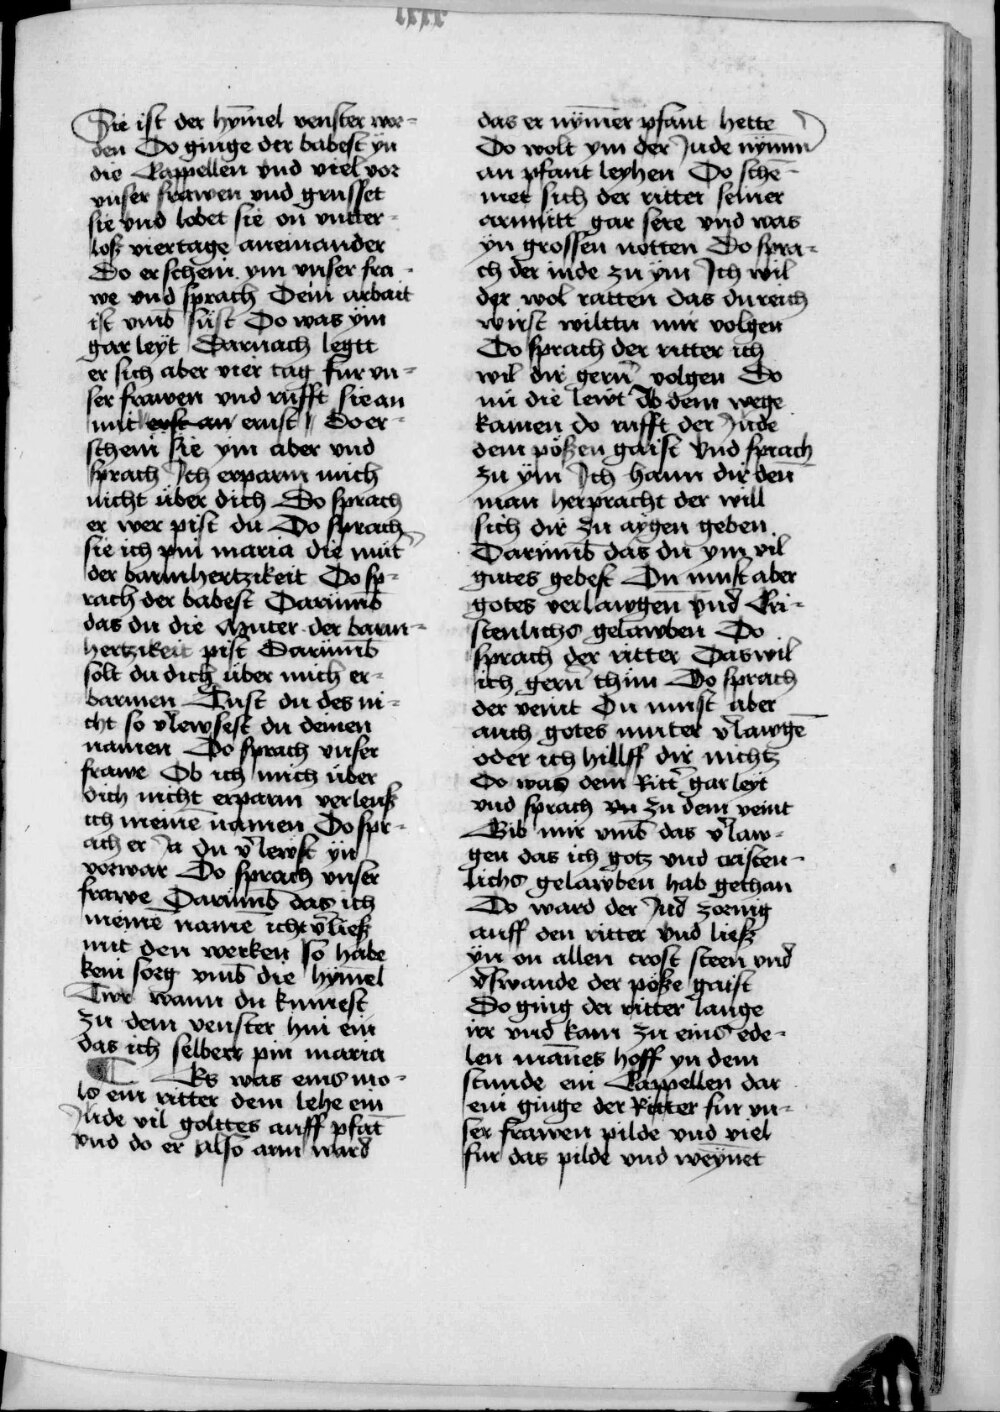 Sie ist der hȳmel venster wor-
den Do ginge der babest yn
die Cappellen vnd viel vor
vnser frawen vnd grusset
sie vnd lobet sie on vnter-
loß viertage aneinander
Do erschein ym vnser fra-
we vnd sprach Dein arbait
ist vmb süst Do was ym
gar leyt Darnach legtt
er sich aber vier tag fur vn-
ser frawen vnd rufft sie an
mit ernst Do er-
schein sie ym aber vnd
sprach Ich erparm mich
nicht über dich Do sprach
er wer pist du Do sprach
sie ich pin maria die mut̄
der barmhertzikeit Do sp-
rach der babest Darumb
das du die Muter der barm-
hertzikeit pist Darumb
solt du dich über mich er-
barmen Tust du des ni-
cht so v̄lewsest du deinen
namen Do sprach vnser
frawe Ob ich mich über
dich nicht erparm verleuß
ich meinē namen Do spr-
ach er Ja du v̄lewst yn
vorwar Do sprach vnser
frawe Darumb das ich
meinē namē icht v̄ließ
mit den werken so habe
kein sorg vmb die hymel
Tür wann du kumest
zu dem venster hin ein
das ich selberr pin maria
Es was eins mo-
ls ein ritter dem lehe ein
Jude vil golttes auff pfāt
vnd do er also arm ward
das er nȳmer pfant hette
Do wolt ym der Jude nymm̄
an pfant leyhen Do schē-
met sich der ritter seiner
armutt gar sere vnd was
yn grossen notten Do spra-
ch der iude zu ym Ich wil
der wol ratten das du reich
wirst wilttu mir volgen
Do sprach der ritter ich
wil dir gern̄ volgen Do
nu die lewt ob dem wege
kamen do rufft der Jude
dem pößen gaist Vnd sprach
zu ym Ich hann dir den̄
man herpracht der will
sich dir zu aygen geben
Darumb das du ym vil
gutes gebest Du must aber
gotes verlawgen vnd Cri-
stenlichs gelawben Do
sprach der ritter Das wil
ich gern̄ thun Do sprach
der veint Du must aber
auch gotes muter v̄lawgē
oder ich hillff dir nichtz
Do was dem Ritt̄ gar leyt
vnd sprach zu dem veint
Gib mir vmb das v̄law-
gen das ich gotz vnd cristen-
lichs gelawben hab gethan
Do ward der Jud zornig
auff den ritter vnd ließ
yn on allen trost steen vnd
v̄swande der pöße gaist
Do ging der ritter lange
irr vnd kam zu eins ede-
len mānes hoff yn dem
stunde ein Cappellen dar
ein ginge der Ritter fur vn-
ser frawen pilde vnd viel
fur das pilde vnd weynet